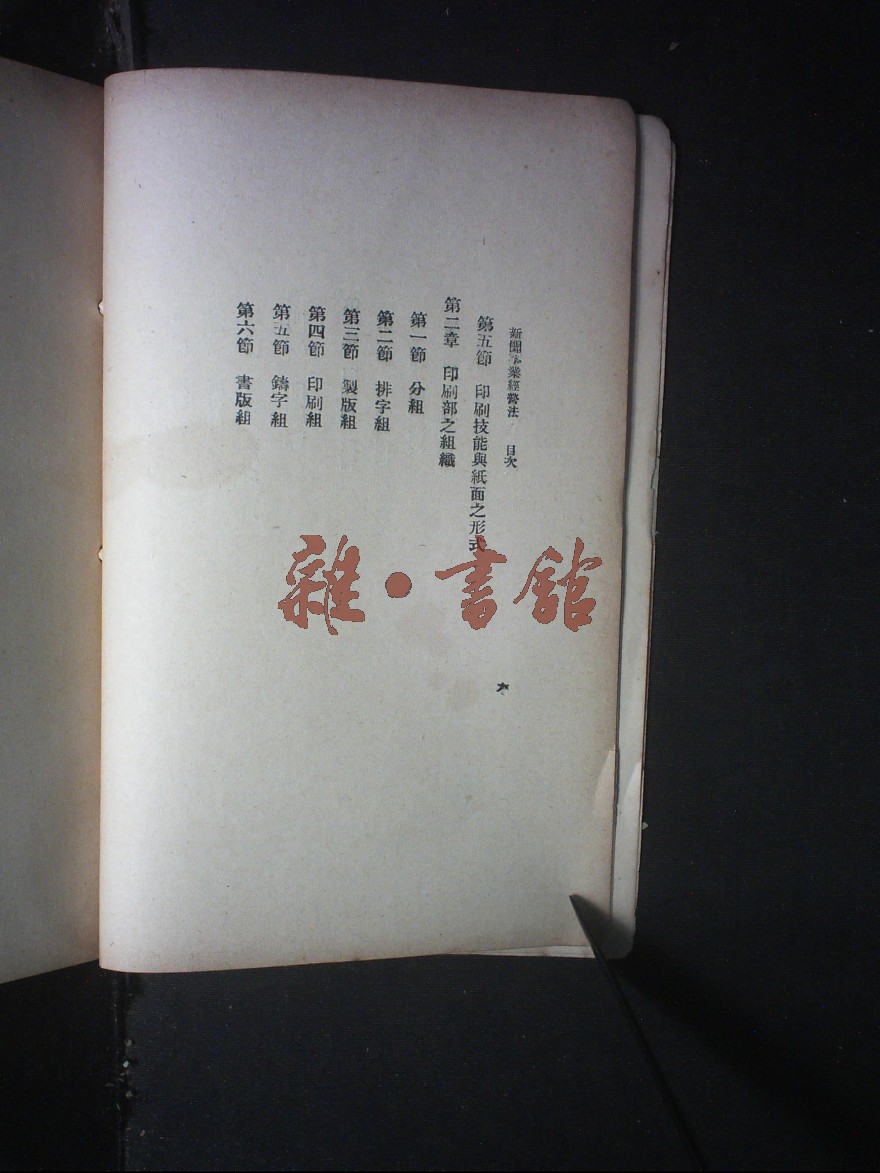 新聞事業經營法　目次
第五節　印刷技能與紙面之形式
第二章　印刷部之組織
第一節　分組
第二節　排字組
第三節　製版組
第四節　印刷組
第五節　鑄字組
第六節　書版組
六
雜·書館